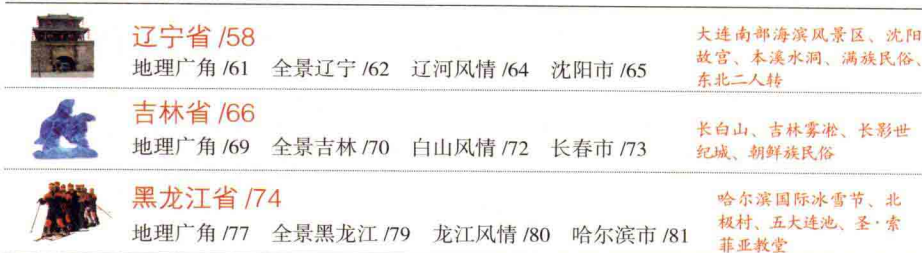 辽宁省 /58
地理广角 /61 全景辽宁 /62 辽河风情 /64 沈阳市 /65
大连南部海滨风景区、沈阳
故宫、本溪水洞、满族民俗、
东北二人转
吉林省 /66
地理广角 /69 全景吉林 /70 白山风情 /72 长春市 /73
长白山、吉林雾凇、长影世
纪城、朝鲜族民俗
黑龙江省 /74
地理广角 /77 全景黑龙江 /79 龙江风情 /80 哈尔滨市 /81
哈尔滨国际冰雪节、北
极村、五大连池、圣·索
菲亚教堂